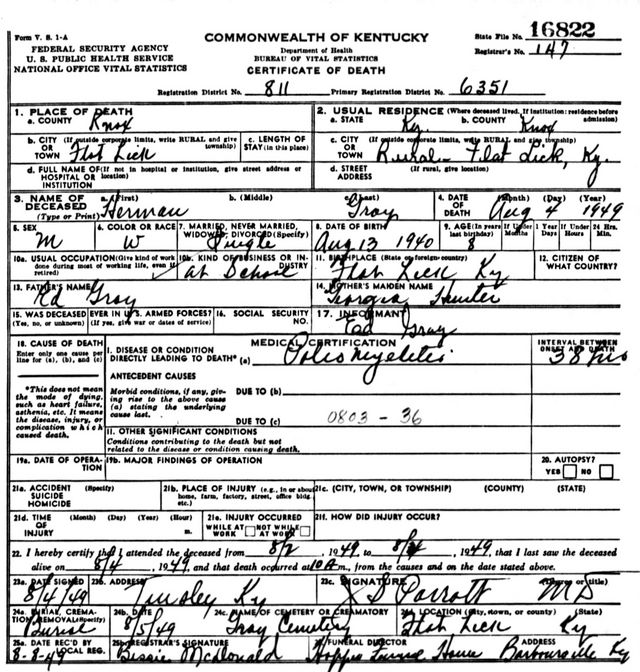 Form V. S. 1-A
COMMONWEALTH OF KENTUCKY
State File No. 16822
FEDERAL SECURITY AGENCY
Department of Health
Registrar's No. 147
U. S. PUBLIC HEALTH SERVICE
BUREAU OF VITAL STATISTICS
NATIONAL OFFICE VITAL STATISTICS
CERTIFICATE OF DEATH
Registration District No. 811 Primary Registration District No. 6351
1. PLACE OF DEATH
a. COUNTY Knox
2. USUAL RESIDENCE (Where deceased lived. If institution: residence before admission)
a. STATE Ky. b. COUNTY Knox
b. CITY (If outside corporate limits, write RURAL and give township) OR TOWN Flat Lick
c. LENGTH OF STAY (in this place)
c. CITY (If outside corporate limits, write RURAL and give township) OR TOWN Rural - Flat Lick, Ky.
d. FULL NAME OF (If not in hospital or institution, give street address or location) HOSPITAL OR INSTITUTION
d. STREET ADDRESS (If rural, give location)
3. NAME OF DECEASED (Type or Print) a. (First) Herman b. (Middle) c. (Last) Gray
4. DATE OF DEATH (Month) (Day) (Year) Aug 4 1949
5. SEX M
6. COLOR OR RACE W
7. MARRIED, NEVER MARRIED, WIDOWED, DIVORCED (Specify) Single
8. DATE OF BIRTH Aug 13 1940
9. AGE (In years last birthday) 8 If Under 1 Year Months Days If Under 24 Hrs. Hours Min.
10a. USUAL OCCUPATION (Give kind of work done during most of working life, even if retired)
10b. KIND OF BUSINESS OR INDUSTRY at School
11. BIRTHPLACE (State or foreign country) Flat Lick Ky
12. CITIZEN OF WHAT COUNTRY?
13. FATHER'S NAME Ed Gray
14. MOTHER'S MAIDEN NAME Georgia Hunter
15. WAS DECEASED EVER IN U. S. ARMED FORCES? (Yes, no, or unknown) (If yes, give war or dates of service)
16. SOCIAL SECURITY NO.
17. INFORMANT Ed Gray
18. CAUSE OF DEATH
Enter only one cause per line for (a), (b), and (c)
MEDICAL CERTIFICATION
INTERVAL BETWEEN ONSET AND DEATH
I. DISEASE OR CONDITION DIRECTLY LEADING TO DEATH* (a) Poliomyeletis 38 hrs
*This does not mean the mode of dying, such as heart failure, asthenia, etc. It means the disease, injury, or complication which caused death.
ANTECEDENT CAUSES
Morbid conditions, if any, giving rise to the above cause (a) stating the underlying cause last.
DUE TO (b)
DUE TO (c) 0803 - 36
II. OTHER SIGNIFICANT CONDITIONS
Conditions contributing to the death but not related to the disease or condition causing death.
19a. DATE OF OPERATION
19b. MAJOR FINDINGS OF OPERATION
20. AUTOPSY?
YES NO
21a. ACCIDENT SUICIDE HOMICIDE (Specify)
21b. PLACE OF INJURY (e.g., in or about home, farm, factory, street, office bldg. etc.)
21c. (CITY, TOWN, OR TOWNSHIP) (COUNTY) (STATE)
21d. TIME OF INJURY (Month) (Day) (Year) (Hour) m.
21e. INJURY OCCURRED WHILE AT WORK NOT WHILE AT WORK
21f. HOW DID INJURY OCCUR?
22. I hereby certify that I attended the deceased from 8/2, 1949, to 8/4, 1949, that I last saw the deceased
alive on 8/4, 1949, and that death occurred at 10 A m., from the causes and on the date stated above.
23a. DATE SIGNED 8/4/49
23b. ADDRESS Tinsley Ky
23c. SIGNATURE Parrott MD (Degree or title)
24a. BURIAL, CREMATION, REMOVAL (Specify) Burial
24b. DATE 8/5/49
24c. NAME OF CEMETERY OR CREMATORY Gray Cemetery
24d. LOCATION (City, town, or county) (State) Flat Lick Ky
25a. DATE REC'D BY LOCAL REG. 8-8-49
25b. REGISTRAR'S SIGNATURE Bessie McDonald
FUNERAL DIRECTOR Funeral Home
ADDRESS Barbourville Ky